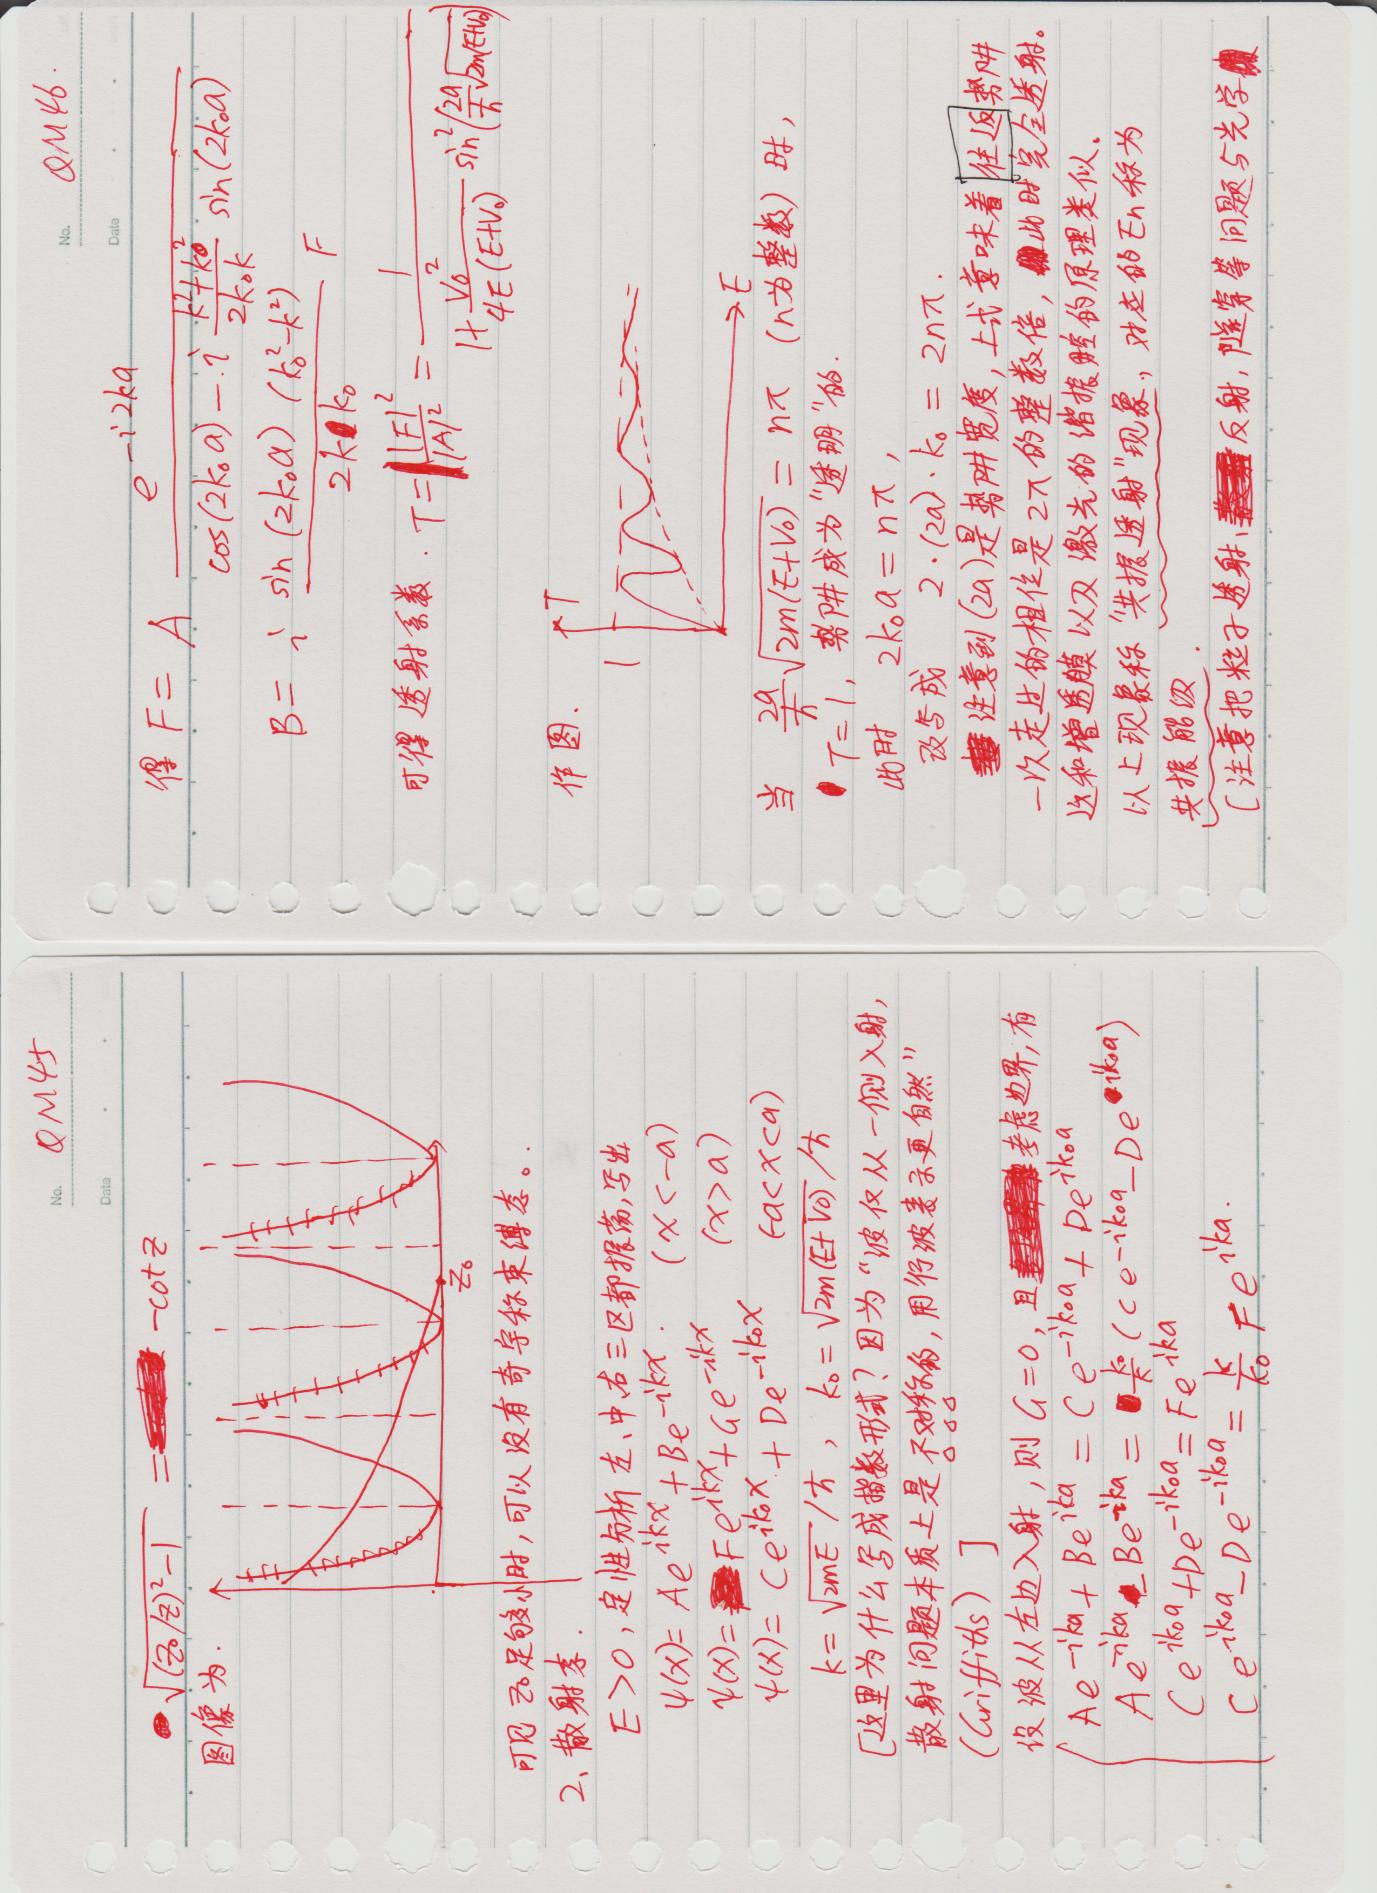 No. QM45
Date
√((z₀/z)²-1) = -cot z
图像为.
z₀
可见 z₀足够小时,可以没有奇宇称束缚态。
2、散射态.
E>0,定性分析左、中、右三区都振荡,写出
ψ(x)= Ae^{ikx}+Be^{-ikx}. (x<-a)
ψ(x)= Fe^{ikx}+Ge^{-ikx} (x>a)
ψ(x)= Ce^{ik₀x}+De^{-ik₀x} (-a<x<a)
k=√(2mE)/ħ, k₀=√(2m(E+V₀))/ħ
[这里为什么写成指数形式?因为“波仅从一侧入射,
散射问题本质上是不对称的,用行波表示更自然”
(Griffiths)]
设波从左边入射,则G=0,且考虑边界,有
Ae^{-ika}+Be^{ika}=Ce^{-ik₀a}+De^{ik₀a}
Ae^{-ika}-Be^{ika}=k₀/k(Ce^{-ik₀a}-De^{ik₀a})
Ce^{ik₀a}+De^{-ik₀a}=Fe^{ika}
Ce^{ik₀a}-De^{-ik₀a}=k/k₀ Fe^{ika}.
No. QM46.
Date
得 F= A e^{-i2ka}/(cos(2k₀a)-i (k²+k₀²)/(2k₀k) sin(2k₀a))
B= i sin(2k₀a)(k₀²-k²)/(2kk₀) F
可得透射系数. T=|F|²/|A|²=1/(1+V₀²/(4E(E+V₀)) sin²(2a/ħ √(2m(E+V₀))))
作图.
T
1
E
当 2a/ħ √(2m(E+V₀)) = nπ (n为整数) 时,
T=1, 势阱成为“透明”的.
此时 2k₀a=nπ,
改写成 2·(2a)·k₀=2nπ.
注意到(2a)是势阱宽度,上式意味着往返势阱
一次走过的相位是2π的整数倍,此时完全透射。
这和增透膜以及激光的谐振腔的原理类似.
以上现象称“共振透射”现象,对应的En称为
共振能级.
[注意把粒子透射、反射,隧穿等问题与光学